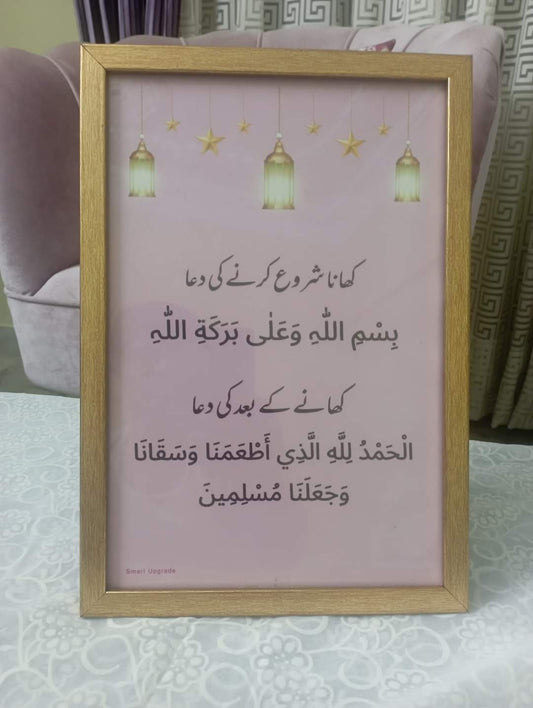 کھانا شروع کرنے کی دعا
بِسْمِ اللّٰہِ وَعَلٰی بَرَکَةِ اللّٰہِ
کھانے کے بعد کی دعا
الْحَمْدُ لِلَّهِ الَّذِي أَطْعَمَنَا وَسَقَانَا
وَجَعَلَنَا مُسْلِمِينَ
Smart Upgrade